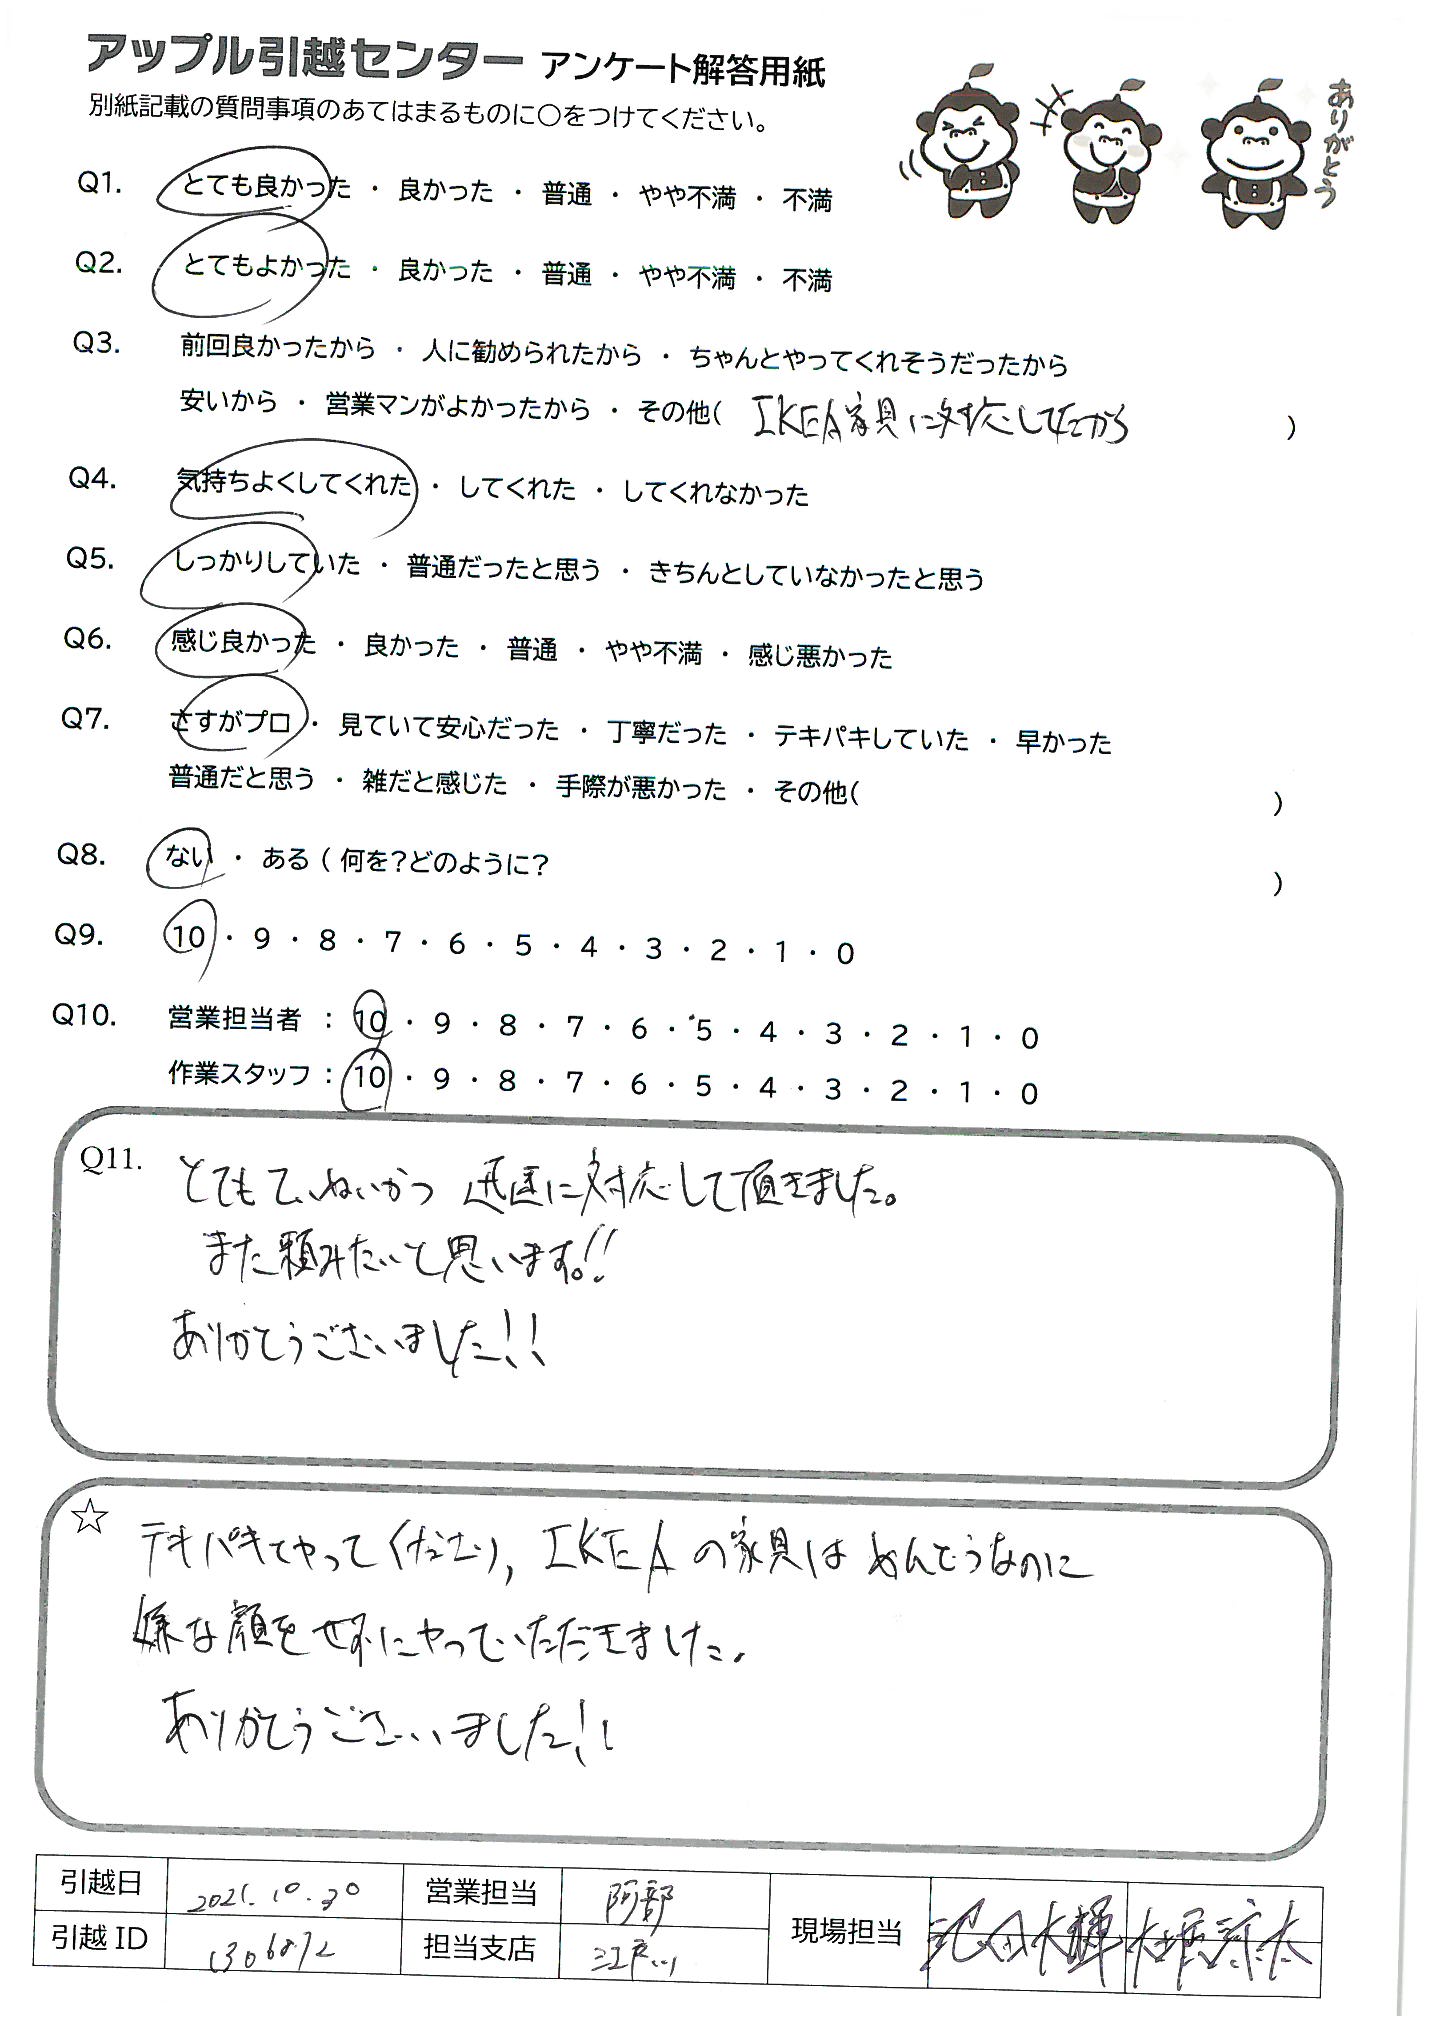 アップル引越センター アンケート解答用紙
別紙記載の質問事項のあてはまるものに○をつけてください。
ありがとう
Q1. とても良かった ・ 良かった ・ 普通 ・ やや不満 ・ 不満
Q2. とてもよかった ・ 良かった ・ 普通 ・ やや不満 ・ 不満
Q3. 前回良かったから ・ 人に勧められたから ・ ちゃんとやってくれそうだったから
安いから ・ 営業マンがよかったから ・ その他( IKEA家具に対応してたから )
Q4. 気持ちよくしてくれた ・ してくれた ・ してくれなかった
Q5. しっかりしていた ・ 普通だったと思う ・ きちんとしていなかったと思う
Q6. 感じ良かった ・ 良かった ・ 普通 ・ やや不満 ・ 感じ悪かった
Q7. さすがプロ ・ 見ていて安心だった ・ 丁寧だった ・ テキパキしていた ・ 早かった
普通だと思う ・ 雑だと感じた ・ 手際が悪かった ・ その他( )
Q8. ない ・ ある ( 何を?どのように? )
Q9. 10 ・ 9 ・ 8 ・ 7 ・ 6 ・ 5 ・ 4 ・ 3 ・ 2 ・ 1 ・ 0
Q10. 営業担当者 : 10 ・ 9 ・ 8 ・ 7 ・ 6 ・ 5 ・ 4 ・ 3 ・ 2 ・ 1 ・ 0
作業スタッフ : 10 ・ 9 ・ 8 ・ 7 ・ 6 ・ 5 ・ 4 ・ 3 ・ 2 ・ 1 ・ 0
Q11. とてもていねいかつ 迅速に対応して頂きました。
また頼みたいと思います。!!
ありがとうございました!!
☆ テキパキとやってくださり, IKEAの家具はめんどうなのに
嫌な顔をせずにやっていただきました.
ありがとうございました!!
引越日 2021.10.30 営業担当 阿部 現場担当 池田大輝
引越ID 担当支店 江戸川